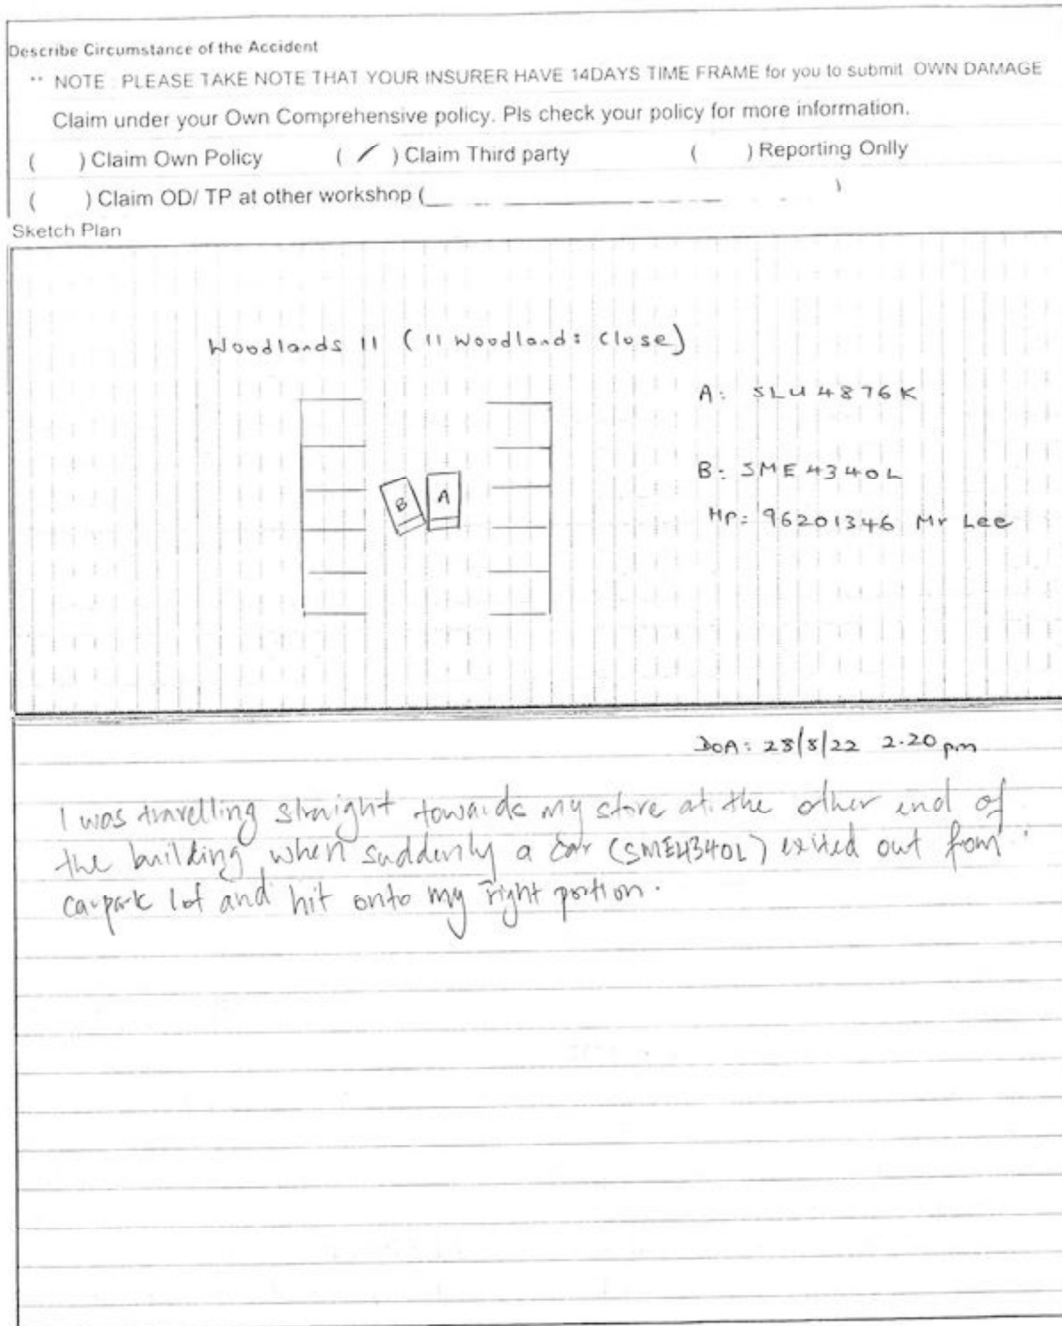 Describe Circumstance of the Accident
** NOTE : PLEASE TAKE NOTE THAT YOUR INSURER HAVE 14DAYS TIME FRAME for you to submit OWN DAMAGE
Claim under your Own Comprehensive policy. Pls check your policy for more information.
( ) Claim Own Policy ( / ) Claim Third party ( ) Reporting Onlly
( ) Claim OD/ TP at other workshop ( )
Sketch Plan
Woodlands 11 (11 Woodlands Close)
A: SLU 4876K
B: SME 4340L
HP: 96201346 Mr Lee
B A
DOA: 28/8/22 2.20 pm
I was travelling straight towards my store at the other end of
the building when suddenly a car (SME4340L) exited out from
carpark lot and hit onto my right portion.